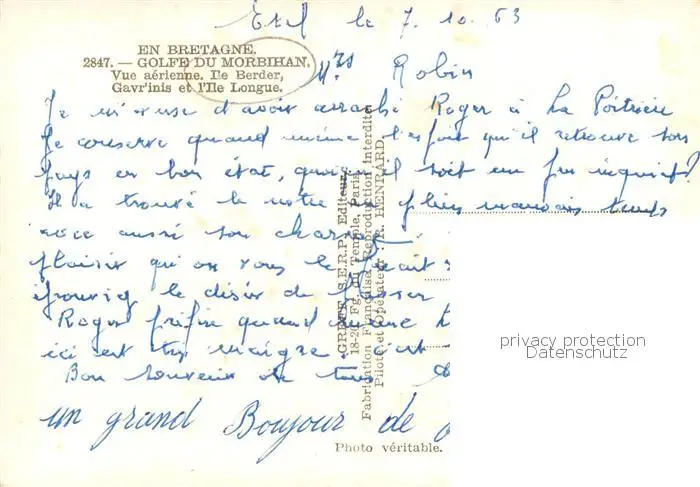 Etel le 7.10.63
EN BRETAGNE.
2847. — GOLFE DU MORBIHAN.
Vue aérienne. Ile Berder,
Gavr'inis et l'Ile Longue.
Mrs Robin
Je m'excuse d'avoir arraché Roger à La
Je conserve quand même l'espoir qu'il retrouve son
pays en bon état, quoiqu'il soit un peu inquiet?
Il a trouvé le notre plus mauvais temps
avec aussi son
plaisir qu'on vous le
le désir de
Roger préfère quand même
ici est très maigre c'est
Bon souvenir de tous
un grand Boujour de
GREFF, S.E.R.P., Editeur,
18-20, Fg. du Temple, Paris
Fabrication Française - Reproduction interdite
Pilote et Opérateur R. HENRARD
Photo véritable.
privacy protection
Datenschutz